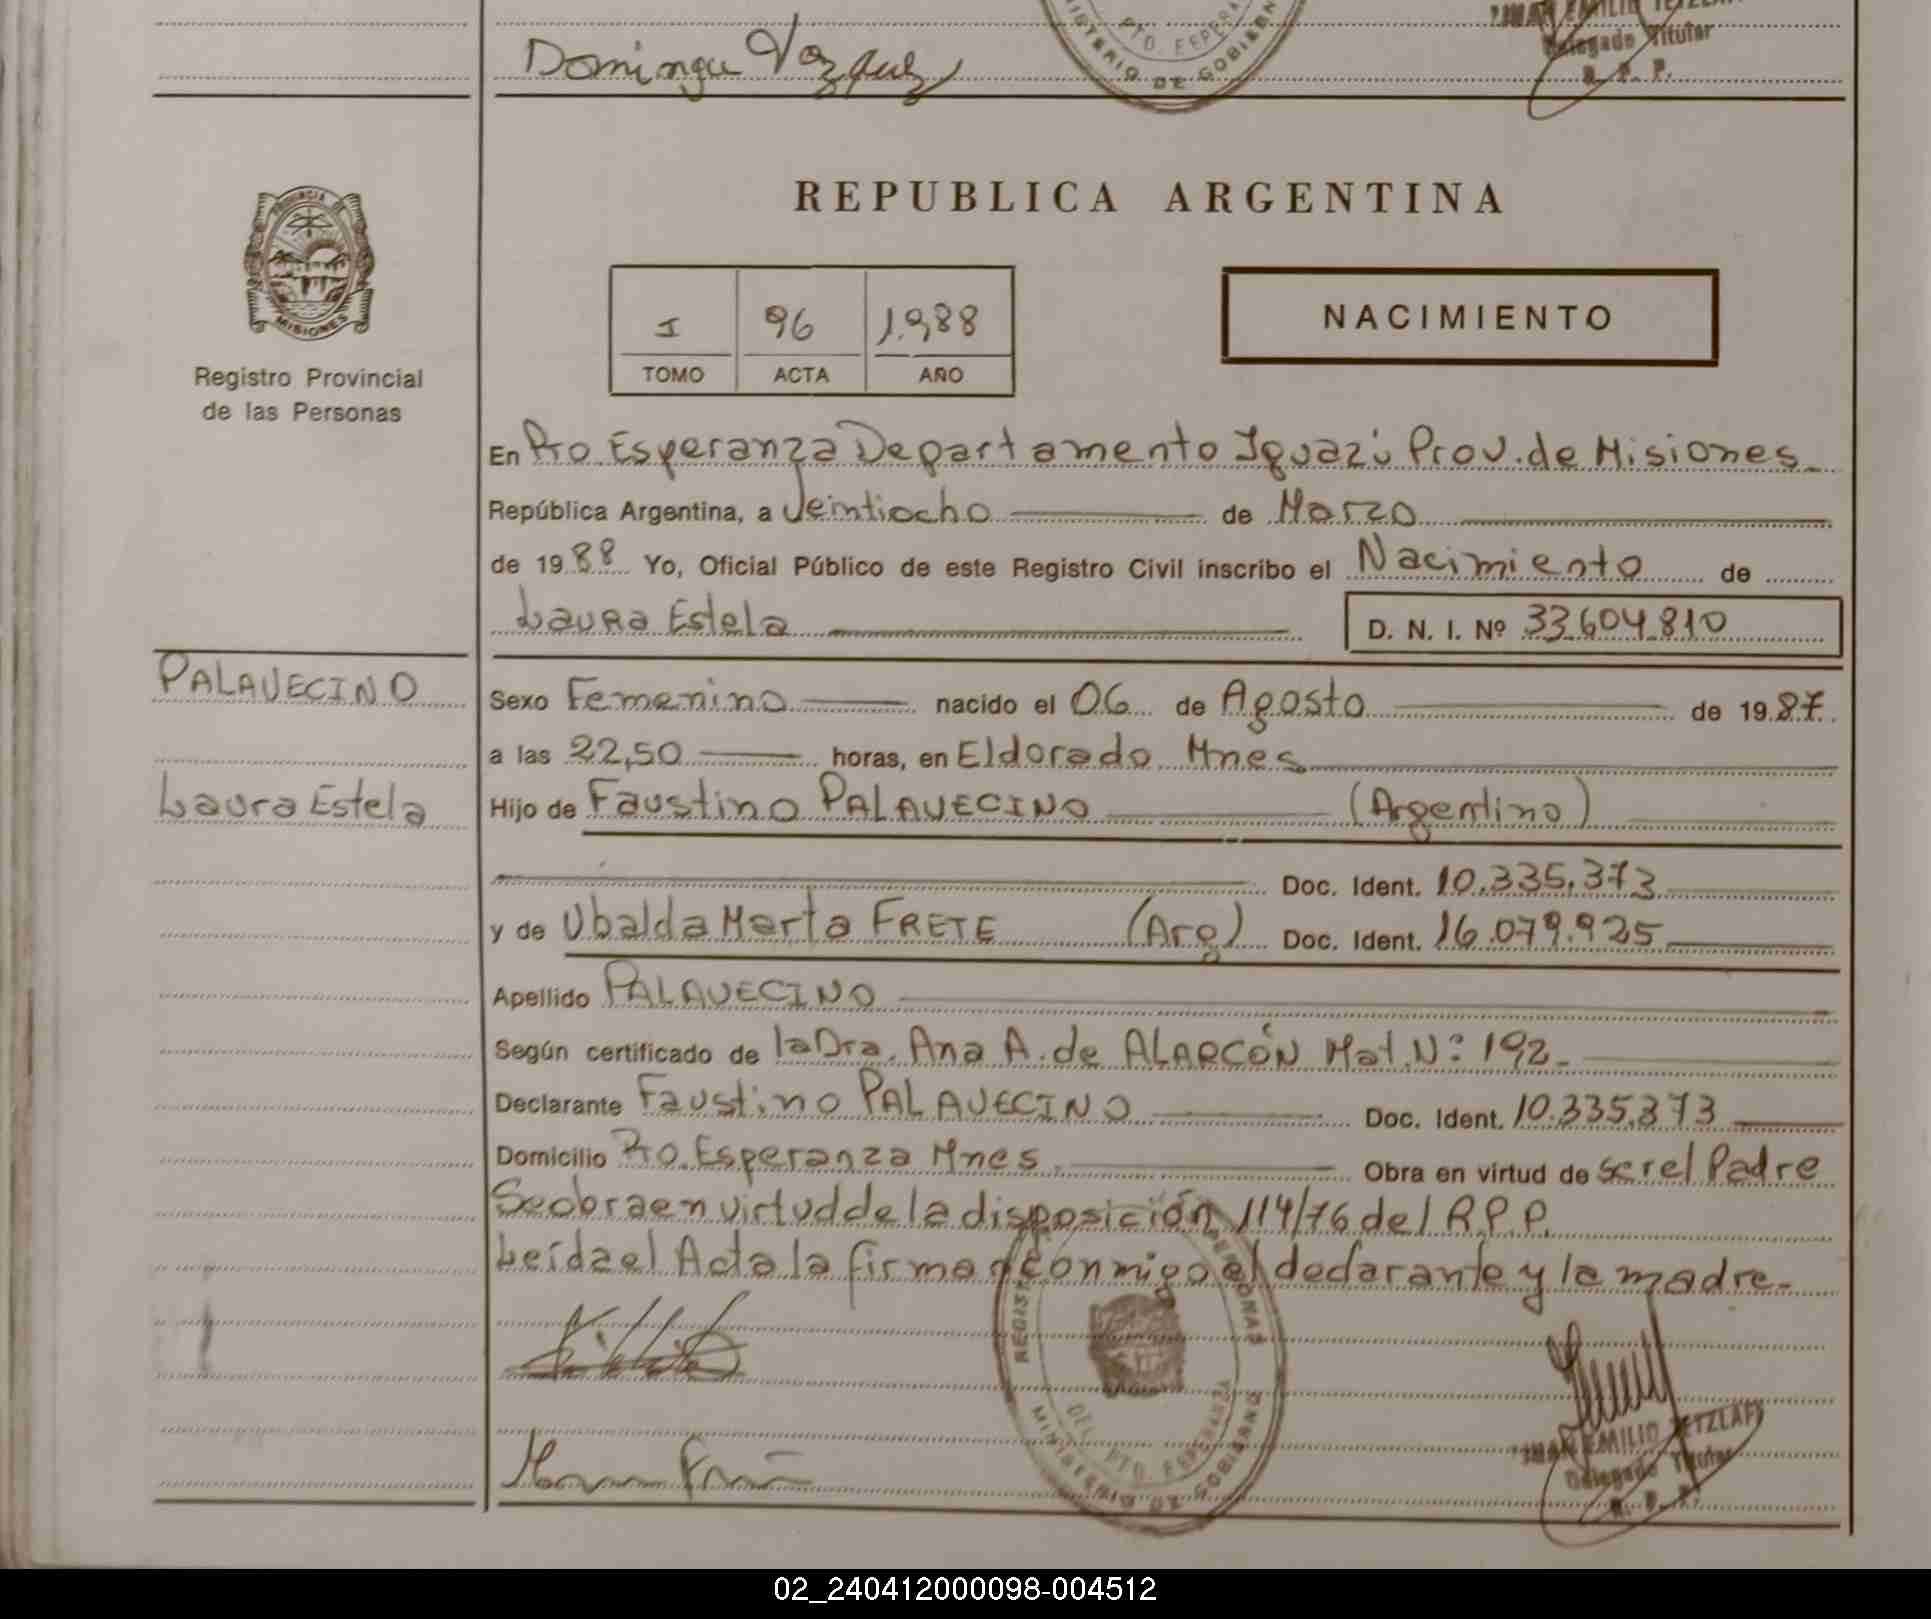 Domingu Vazquez
PTO. ESPERANZA
MINISTERIO DE GOBIERNO
Delegado Titular
R. P. P.
PROVINCIA DE
MISIONES
Registro Provincial
de las Personas
REPUBLICA ARGENTINA
I 96 1.988
TOMO ACTA AÑO
NACIMIENTO
En Pto. Esperanza Departamento Iguazú Prov. de Misiones
República Argentina, a Veintiocho de Marzo
de 19 88 Yo, Oficial Público de este Registro Civil inscribo el Nacimiento de
Laura Estela D. N. I. Nº 33.604.810
PALAVECINO
Laura Estela
Sexo Femenino nacido el 06 de Agosto de 19 87
a las 22,50 horas, en Eldorado Mnes
Hijo de Faustino PALAVECINO (Argentino)
Doc. Ident. 10.335.373
y de Ubalda Marta FRETE (Arg) Doc. Ident. 16.079.925
Apellido PALAVECINO
Según certificado de la Dra. Ana A. de ALARCÓN Mat. Nº 192
Declarante Faustino PALAVECINO Doc. Ident. 10.335.373
Domicilio Pto. Esperanza Mnes Obra en virtud de ser el Padre
Se obra en virtud de la disposición 114/76 del R.P.P.
Leída el Acta la firman conmigo el declarante y la madre.
REGISTRO PERSONAS
DEL. PTO. ESPERANZA
MINISTERIO DE GOBIERNO
JUAN EMILIO TETZLAFF
Delegado Titular
R. P. P.
02_240412000098-004512